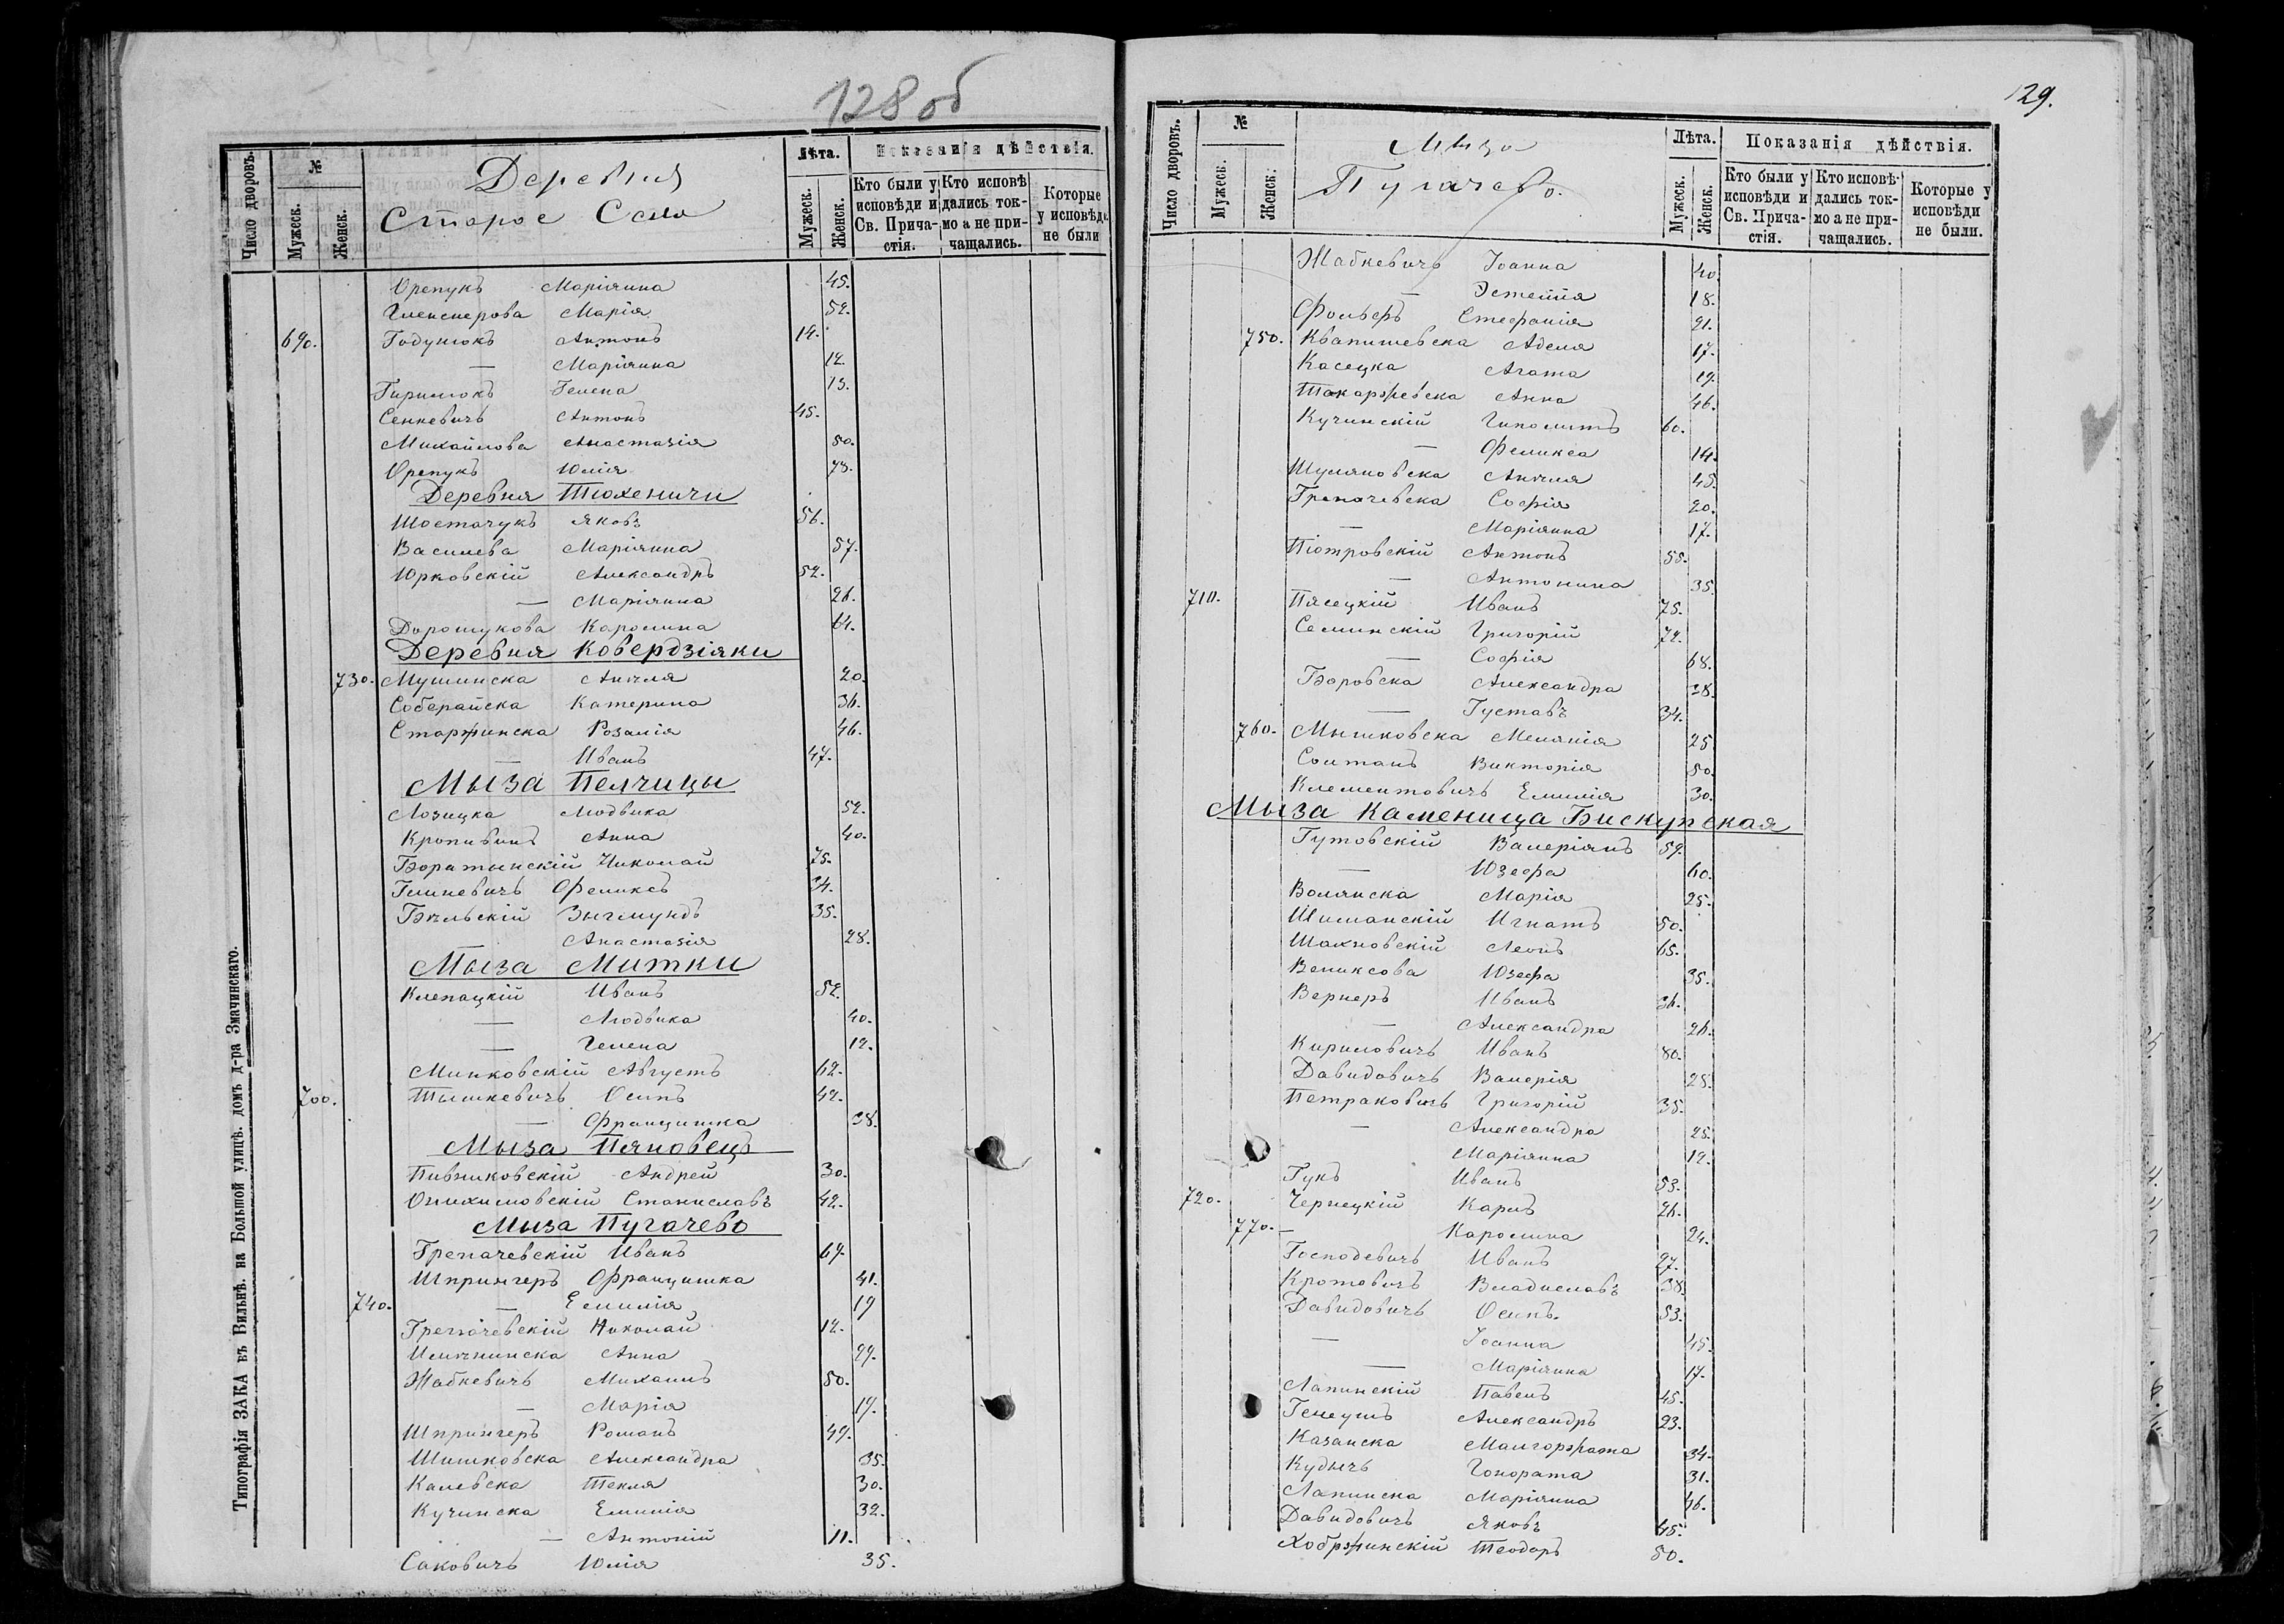 128 об
Число дворовъ.
№
Мужеск.
Женск.
Деревня
Старое Село
Лѣта.
Мужеск.
Женск.
Показанія дѣйствія.
Кто были у исповѣди и Св. Причастія.
Кто исповѣдались токмо а не причащались.
Которые у исповѣди не были
Орепукъ Маріянна 45.
Марія 52.
690. Годунюкъ Антонъ 14.
— Маріянна 12.
Гирилюкъ Гелена 13.
Сенкевичъ Антонъ 45.
Михайлова Анастазія 50.
Орепукъ Юлія 73.
Деревня Тюхеничи
Шостачукъ Яковъ 56.
Василева Маріянна 57.
Юрковскій Александръ 52.
— Маріянна 26.
Дорошукова Каролина 64.
Деревня Ковердзіяки
730. Мушинска Анѣля 20.
Соберайска Катерина 36.
Старжинска Розалія 46.
— Иванъ 47.
Мыза Пелчицы
Лозицка Людвика 52.
Кропивницъ Анна 40.
Боратынскій Николай 75.
Гилневичъ Феликсъ 34.
Бѣльскій Зыгмундъ 35.
Анастазія 28.
Мыза Митки
Клепацкій Иванъ 52.
— Людвика 40.
— Гелена 12.
Минковскій Августъ 62.
700. Тышкевичъ Осипъ 42.
— Францишка 38.
Мыза Пяновецъ
Пивниковскій Андрей 30.
Станиславъ 42.
Мыза Пугачево
Грепачевскій Иванъ 67.
Шпрингеръ Францишка 41.
740. — Емилія 19
Грепачевскій Николай 12.
Анна 27.
Жабкевичъ Михаилъ 50.
— Марія 17.
Шпрингеръ Романъ 47.
Шишковска Александра 35.
Калевска Текля 30.
Кучинска Емилія 32.
— Антоній 11.
Саковичъ Юлія 35.
Типографія ЗАКА въ Вильнѣ. на Большой улицѣ. домъ д-ра Змачинскаго.
129.
Число дворовъ.
№
Мужеск.
Женск.
Мыза
Пугачево.
Лѣта.
Мужеск.
Женск.
Показанія дѣйствія.
Кто были у исповѣди и Св. Причастія.
Кто исповѣдались токмо а не причащались.
Которые у исповѣди не были.
Жабкевичъ Іоанна 40
— 18.
Фольферъ Стефанія 21.
750. Квапишевска Аделя 17.
Касецка Агата 19.
Токаржевска Анна 46.
Кучинскій Гиполитъ 60.
— Феликса 14.
Шуляновска Анѣля 45.
Грепачевска Софія 20.
— Маріянна 17.
Піотровскій Антонъ 55.
— Антонина 35.
710. Пясецкій Иванъ 75.
Селинскій Григорій 72.
— Софія 68.
Боровска Александра 38.
— Густавъ 34.
760. Мышковска Меланія 25
Солтанъ Викторія 50.
Клементовичъ Емилія 30.
Мыза Каменица Бискупская
Гутовскій Валеріянъ 59.
— Юзефа 60.
Волянска Марія 25.
Шиманскій Игнатъ 50.
Шахновскій Леонъ 65.
Вениксова Юзефа 35.
Вернеръ Иванъ 36.
— Александра 26.
Кириловичъ Иванъ 80.
Давидовичъ Валерія 28.
Петраковичъ Григорій 35.
— Александра 25.
Маріянна 12.
Гукъ Иванъ 53.
720. Чернецкій Карлъ 26.
770. — Каролина 24.
Господевичъ Иванъ 27.
Кротовичъ Владиславъ 38.
Давидовичъ Осипъ. 53.
— Іоанна 45.
— Маріянна 17.
Лапинскій Павелъ 45.
Генеушъ Александръ 23.
Казанска Малгоржата 34.
Кудычъ Гонората 31.
Лапинска Маріянна 46.
Давидовичъ Яковъ 45.
Хобржинскій Теодоръ 50.